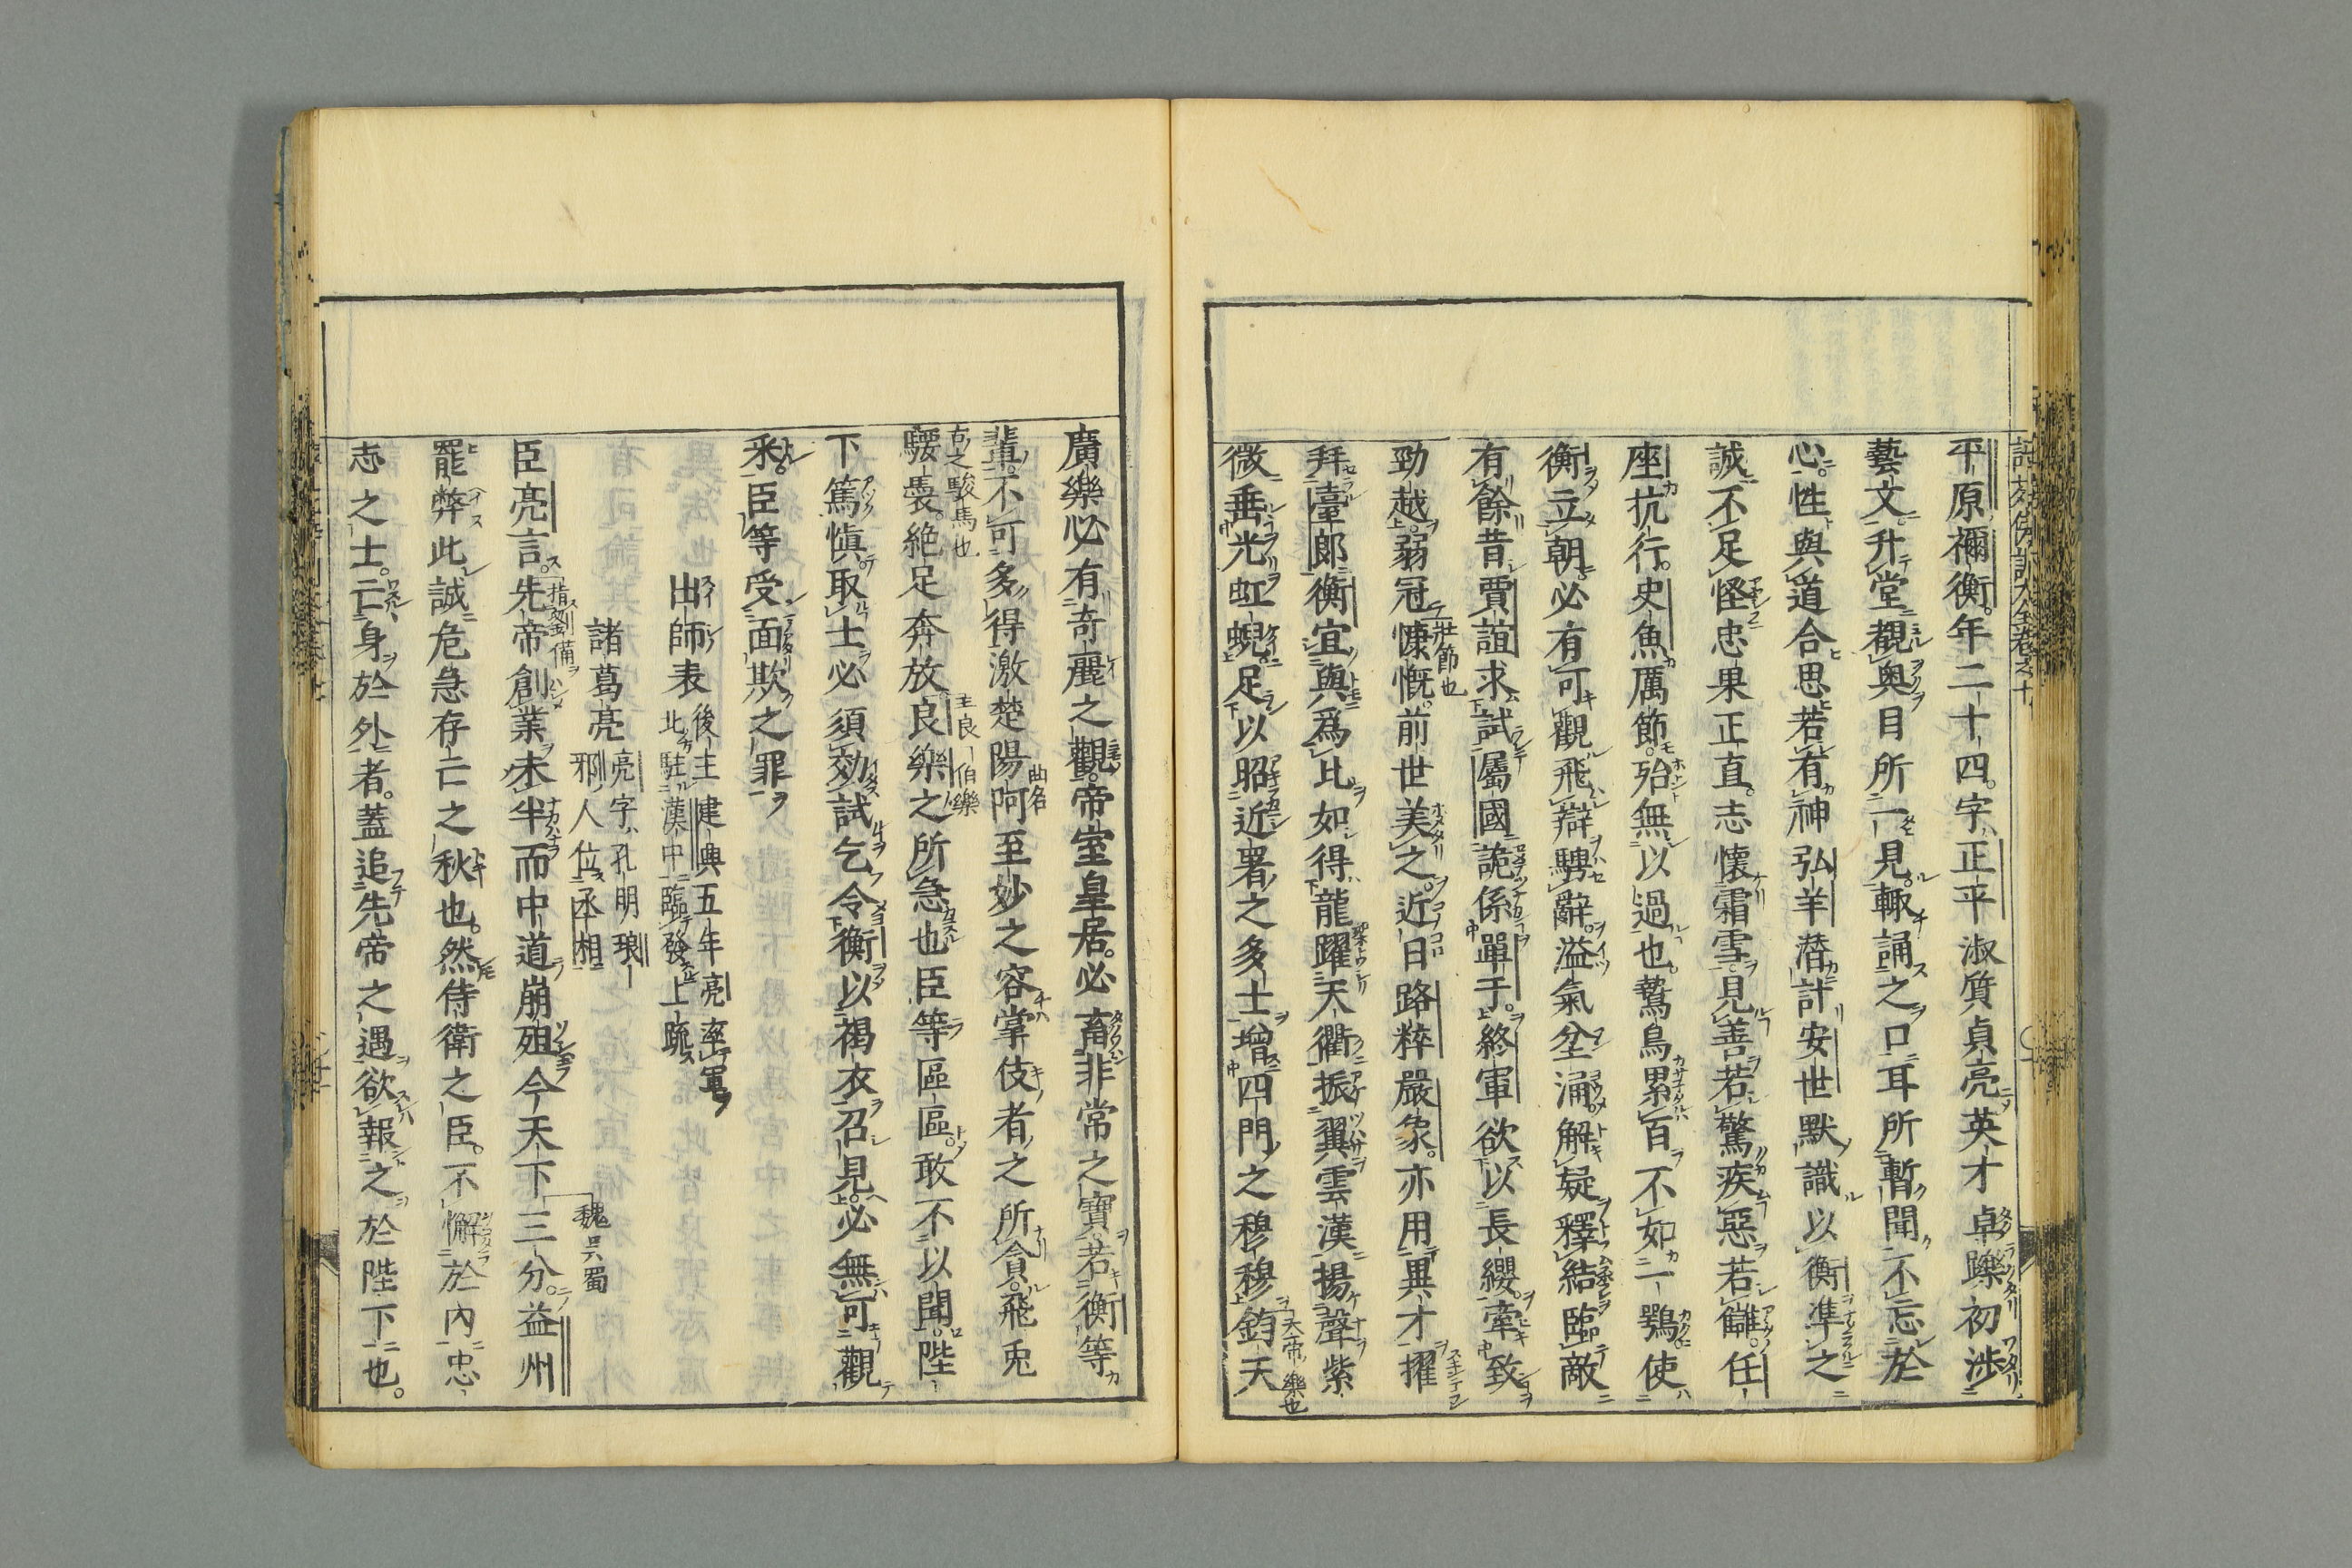 平原禰衡年二十四字正平淑質貞亮英才卓躒初渉
藝文升堂覩奥目所一見輙誦之口耳所暫聞不忘於
心性與道合思若有神弘羊潜計安世默識以衡準之
誠不足怪忠果正直志懷霜雪見善若驚疾惡若讎任
座抗行史魚厲節殆無以過也鷙鳥累百不如一鶚使
衡立朝必有可觀飛辯騁辭溢氣坌涌解疑釋結臨敵
有餘昔賈誼求試屬國詭係單于終軍欲以長纓牽致
勁越弱冠慷慨前世美之近日路粹嚴象亦用異才擢
壮節也
拜臺郎衡宜與爲比如得龍躍天衢振翼雲漢揚聲紫
微垂光虹蜺足以昭近署之多士增四門之穆穆鈞天
天帝樂也
廣樂必有奇麗之觀帝室皇居必畜非常之寶若衡等
輩不可多得激楚陽阿至妙之容掌伎者之所貪飛兎
曲名
古之駿馬也
騕褭絶足奔放良樂之所急也臣等區區敢不以聞陛
王良伯樂
下篤慎取士必須効試乞令衡以褐衣召見必無可觀
釆臣等受面欺之罪
出師表
後主建興五年亮率軍
北駐漢中臨發上疏
諸葛亮
亮字孔明琅
邪人位丞相
臣亮言先帝創業未半而中道崩殂今天下三分益州
指劉備
魏呉蜀
罷弊此誠危急存亡之秋也然侍衛之臣不懈於内忠
志之士亡身於外者蓋追先帝之遇欲報之於陛下也